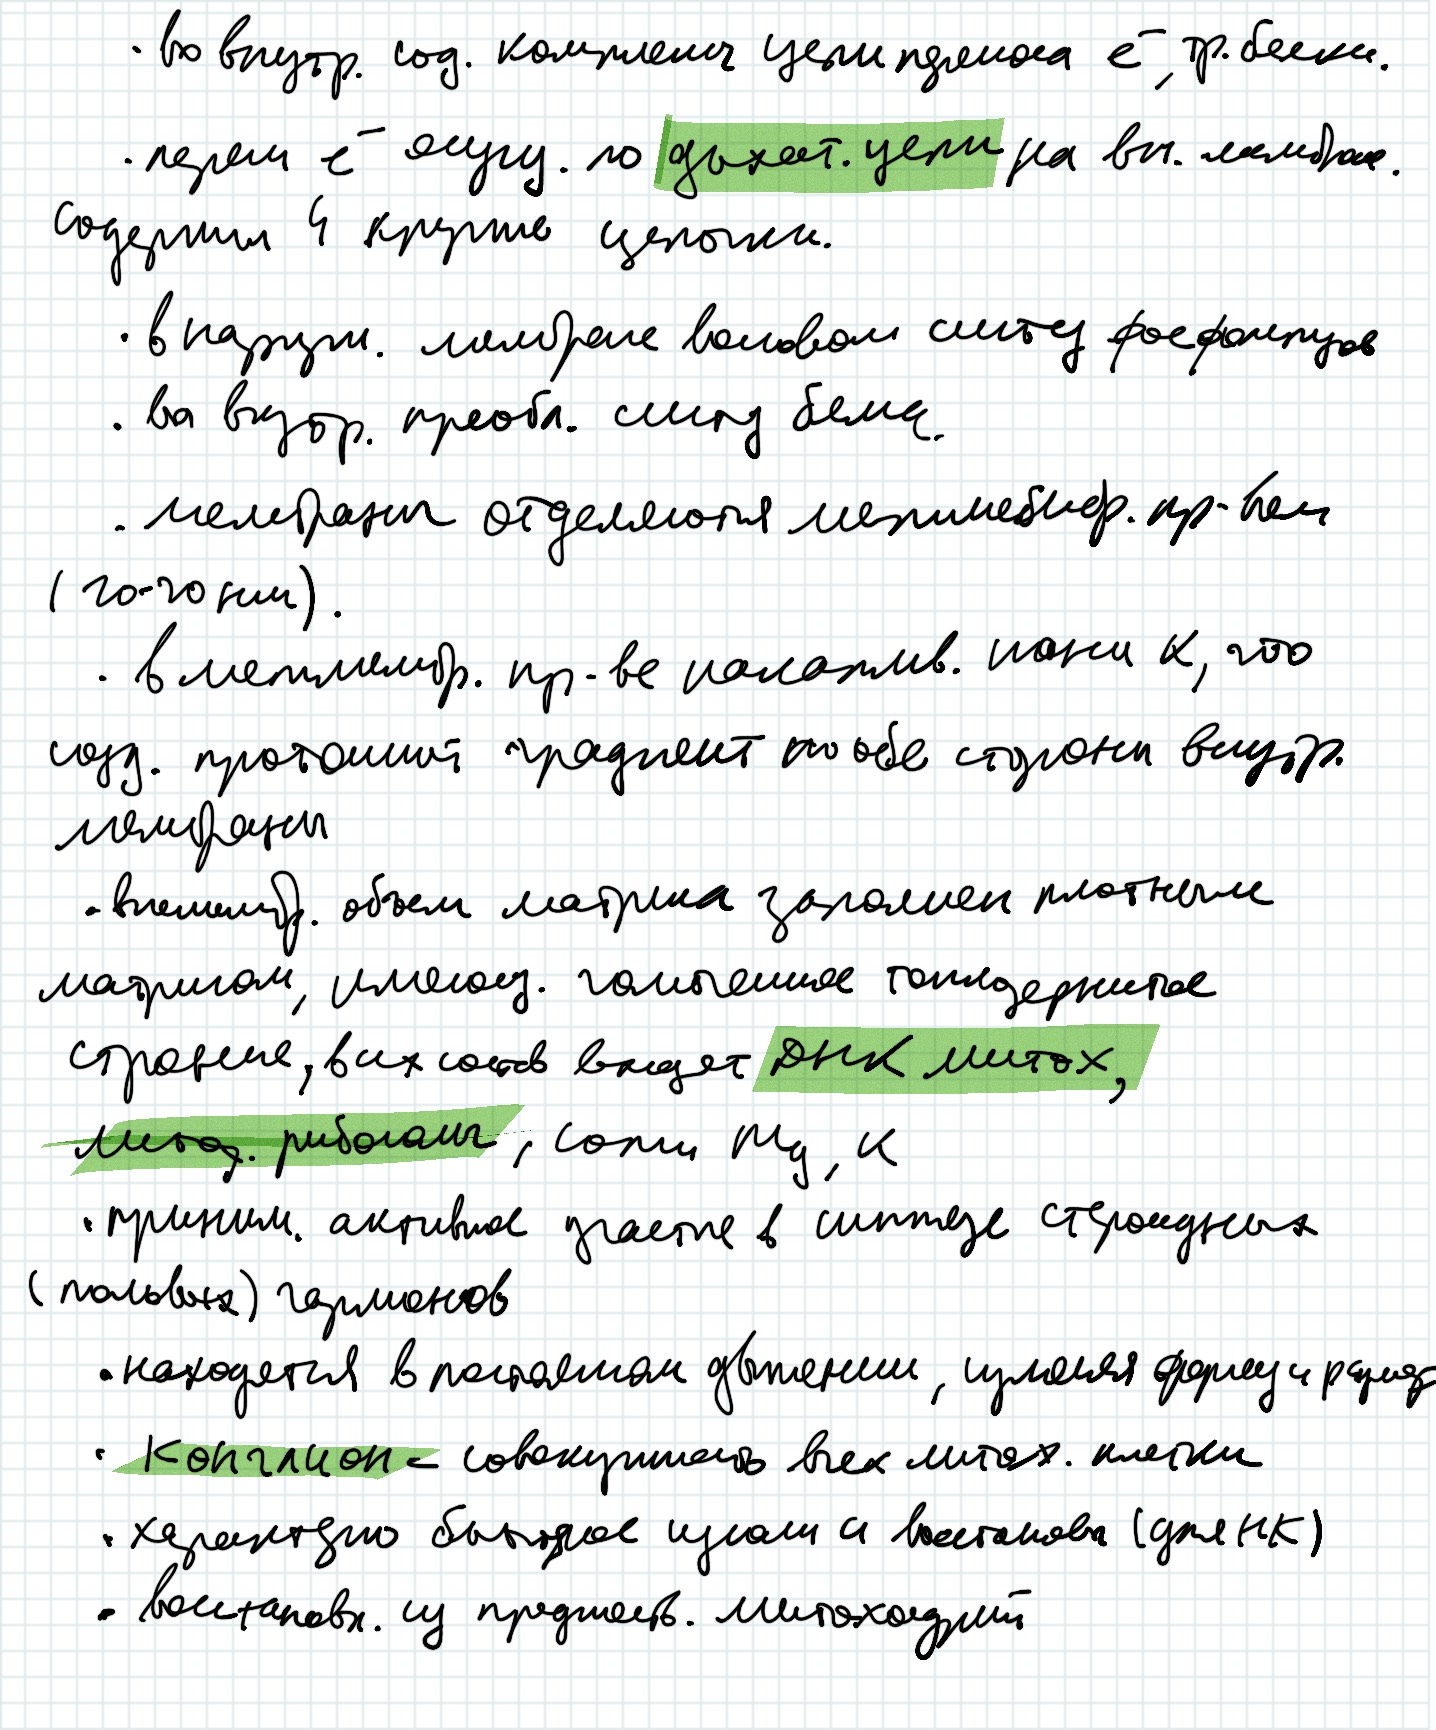 · во внутр. сод. комплексы цепи переноса е⁻, тр. белки.
· перен е⁻ осущ. по дыхат. цепи на вн. мембране.
содержит 4 крупные цепочки.
· в наруж. мембране основном синтез фосфолипидов
· во внутр. преобл. синтез белка.
· мембраны отделяются межмембр. пр-вом
(10-20 нм).
· в межмембр. пр-ве накаплив. ионы К, что
созд. протонный градиент по обе стороны внутр.
мембраны
· внемембр. объем матрикса заполнен плотным
матриксом, имеющ. гомогенное тонкодернистое
строение, в их состав входят ДНК митох,
митох. рибосомы, соли Mg, К
· приним. активное участие в синтезе стероидных
(половых) гормонов
· находятся в постоянном движении, изменяя форму и размер
· Кондлион - совокупность всех митох. клетки
· характерно быстрое и восстановл (для НК)
· восстановл. из предшеств. митохондрий